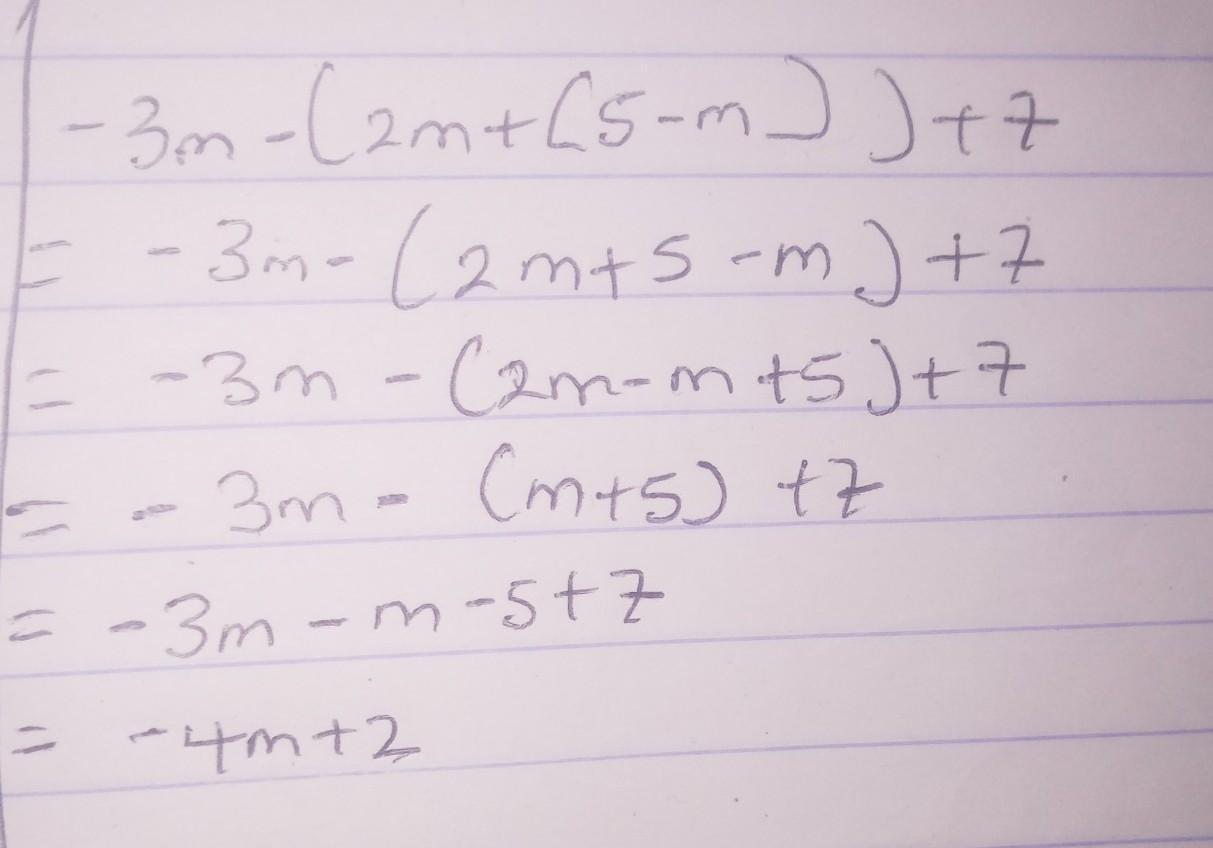 -3m-(2m+[5-m])+7
= -3m-(2m+5-m)+7
= -3m-(2m-m+5)+7
= -3m-(m+5)+7
= -3m-m-5+7
= -4m+2